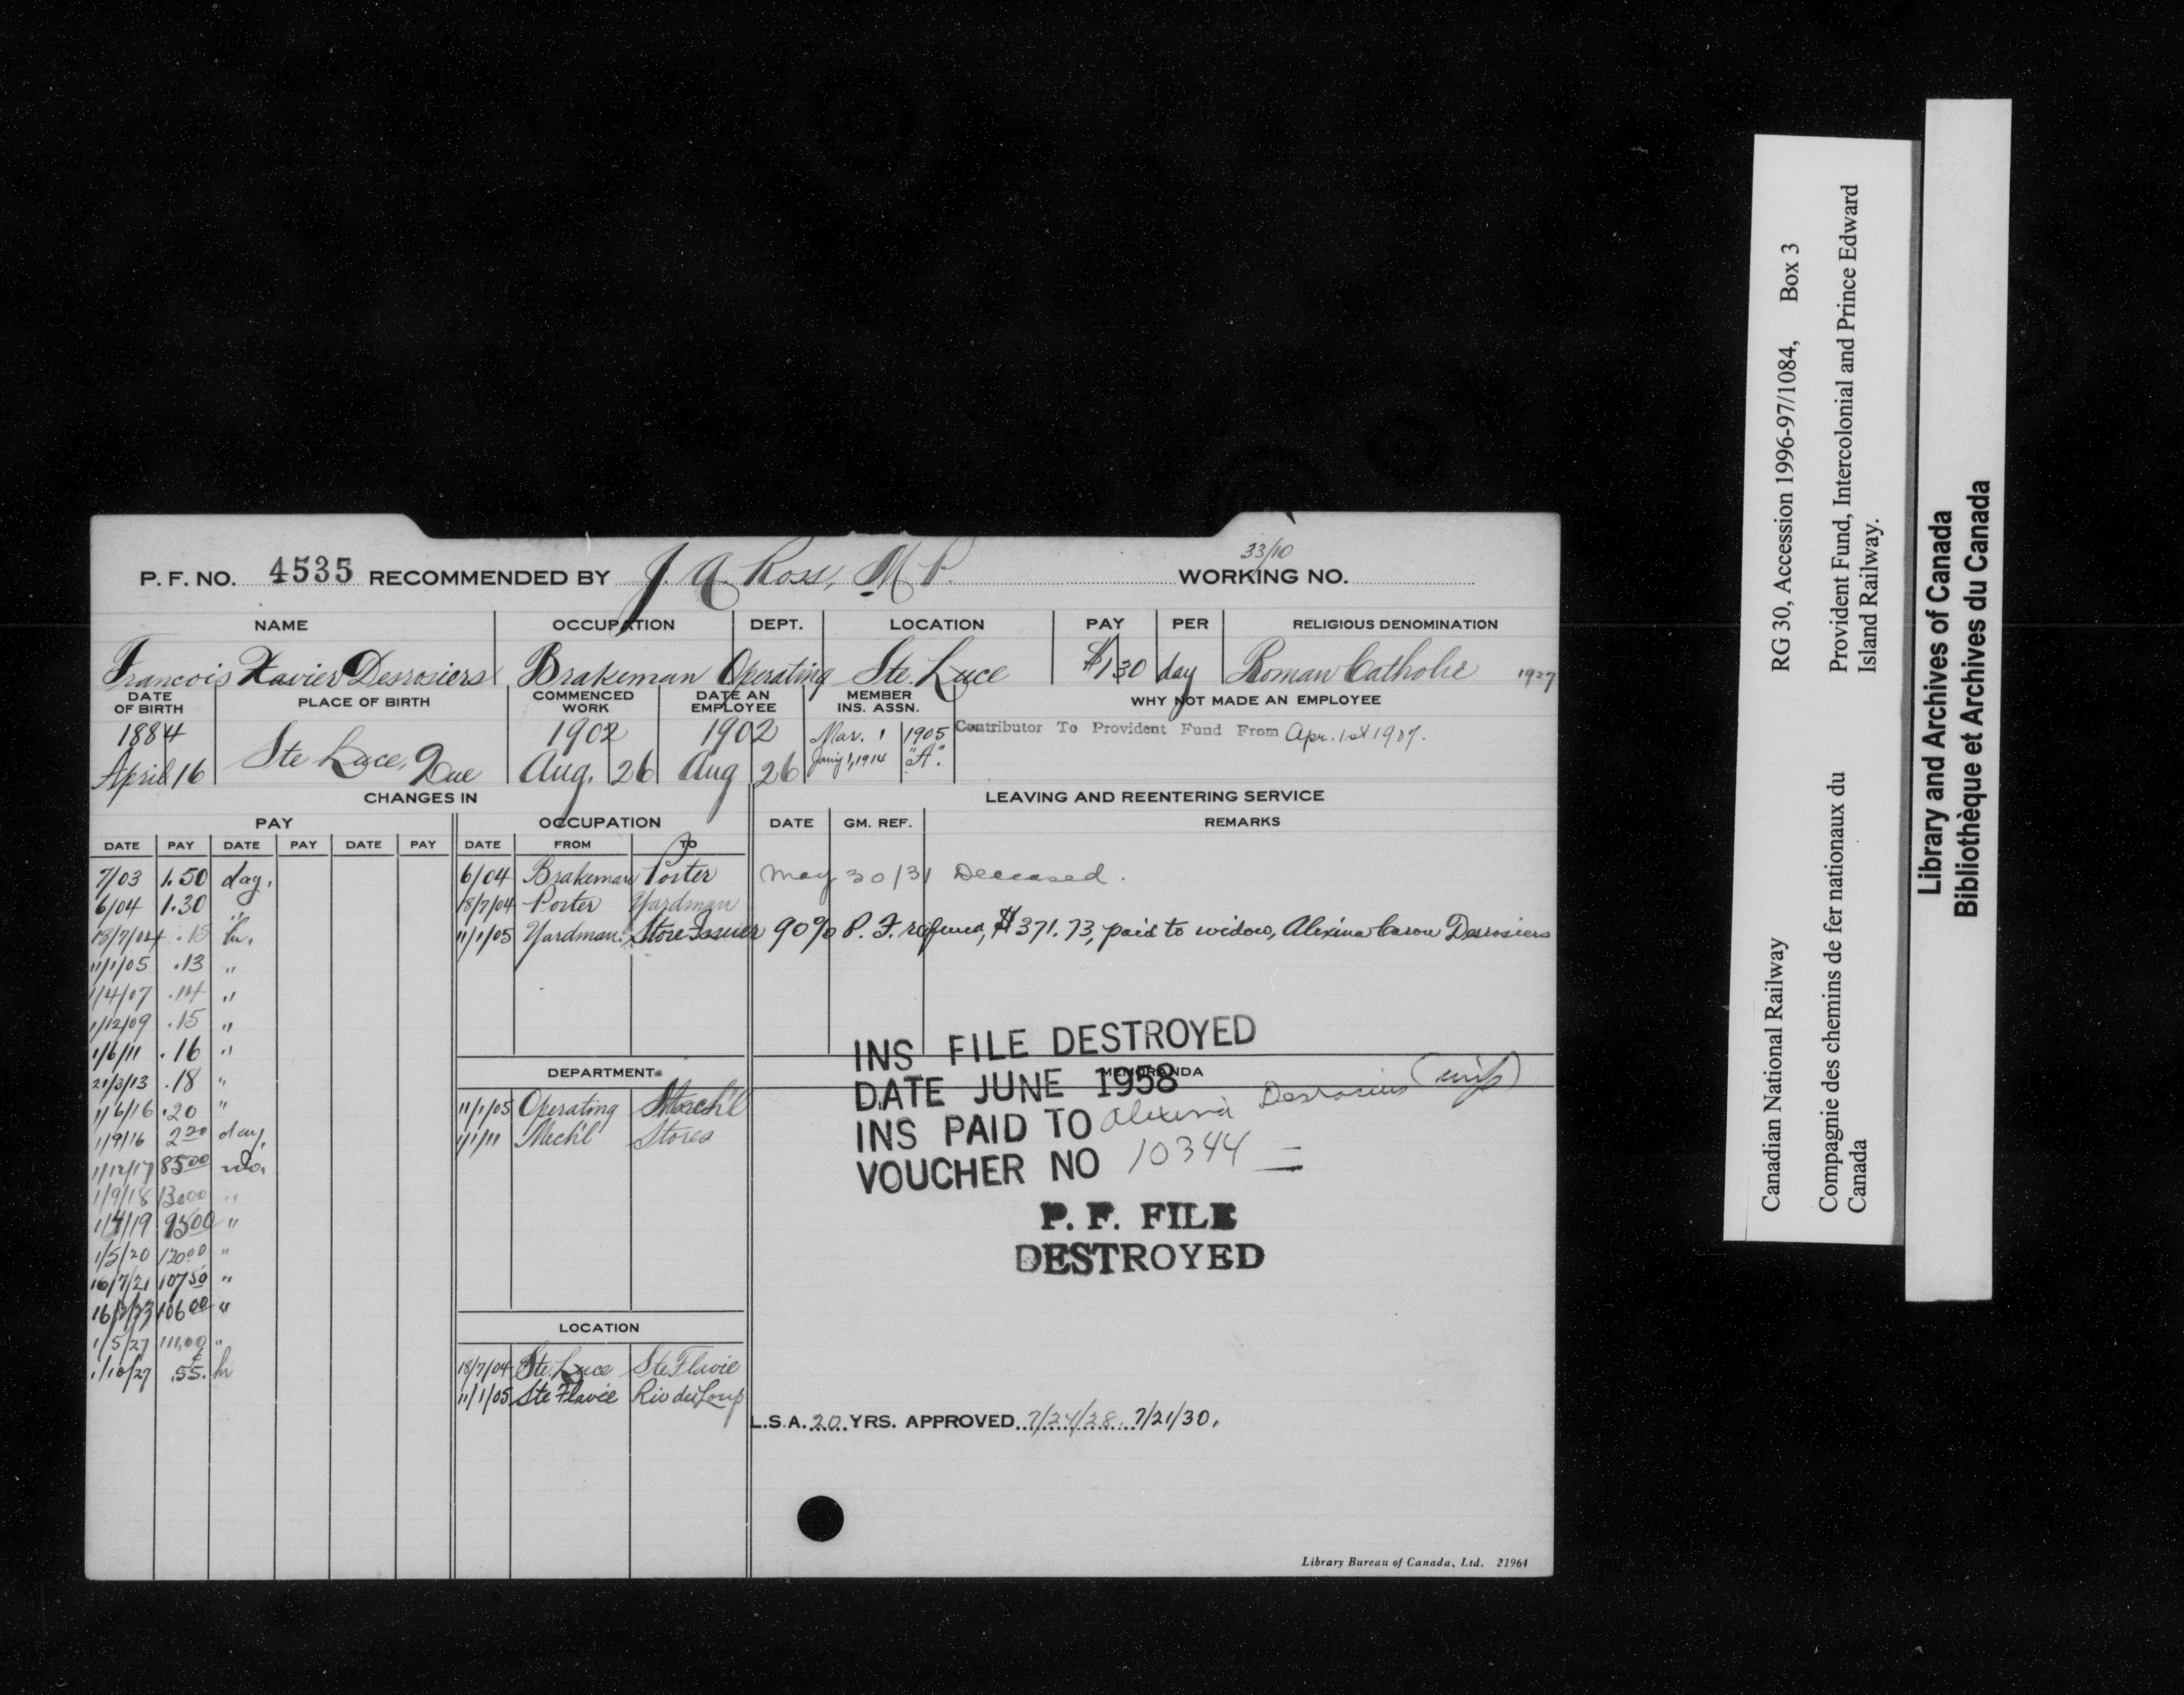 33/10
P. F. NO. 4535 RECOMMENDED BY J. A. Ross, M. P. WORKING NO.
NAME OCCUPATION DEPT. LOCATION PAY PER RELIGIOUS DENOMINATION
Francois Xavier Desrosiers Brakeman Operating Ste. Luce $1 30 day Roman Catholic 1927
DATE OF BIRTH PLACE OF BIRTH COMMENCED WORK DATE AN EMPLOYEE MEMBER INS. ASSN. WHY NOT MADE AN EMPLOYEE
1884 1902 1902 Mar. 1 1905 Contributor To Provident Fund From Apr. 1st 1907.
April 16 Ste Luce, Que Aug. 26 Aug 26 Jan'y 1, 1914 "A".
CHANGES IN LEAVING AND REENTERING SERVICE
PAY OCCUPATION DATE GM. REF. REMARKS
DATE PAY DATE PAY DATE PAY DATE FROM TO
7/03 1.50 day. 6/04 Brakeman Porter May 30/31 Deceased.
6/04 1.30 " 18/7/04 Porter Yardman
18/7/04 .15 hr. 11/1/05 Yardman Store Issuer 90% P. F. refund, $371.73, paid to widow, Alexina Caron Desrosiers
11/1/05 .13 "
1/4/07 .14 "
1/12/09 .15 "
1/6/11 .16 "
21/3/13 .18 "
1/6/16 .20 "
1/9/16 2 20 day.
1/12/17 85 00 mo.
1/9/18 130 00 "
1/4/19 95 00 "
1/5/20 120 00 "
16/7/21 107 50 "
106 00 "
1/5/27 111.00 "
1/10/27 .55 hr
DEPARTMENT MEMORANDA
11/1/05 Operating Mech'l
1/1/11 Mech'l Stores
INS FILE DESTROYED
DATE JUNE 1958
INS PAID TO Alexina Desrosiers (wife)
VOUCHER NO 10344
P. F. FILE
DESTROYED
LOCATION
18/7/04 Ste. Luce Ste Flavie
11/1/05 Ste Flavie Riv du Loup
L.S.A. 20 YRS. APPROVED 7/24/28. 7/21/30.
Library Bureau of Canada, Ltd. 21964
Canadian National Railway RG 30, Accession 1996-97/1084, Box 3
Compagnie des chemins de fer nationaux du Canada
Provident Fund, Intercolonial and Prince Edward Island Railway.
Library and Archives of Canada
Bibliothèque et Archives du Canada